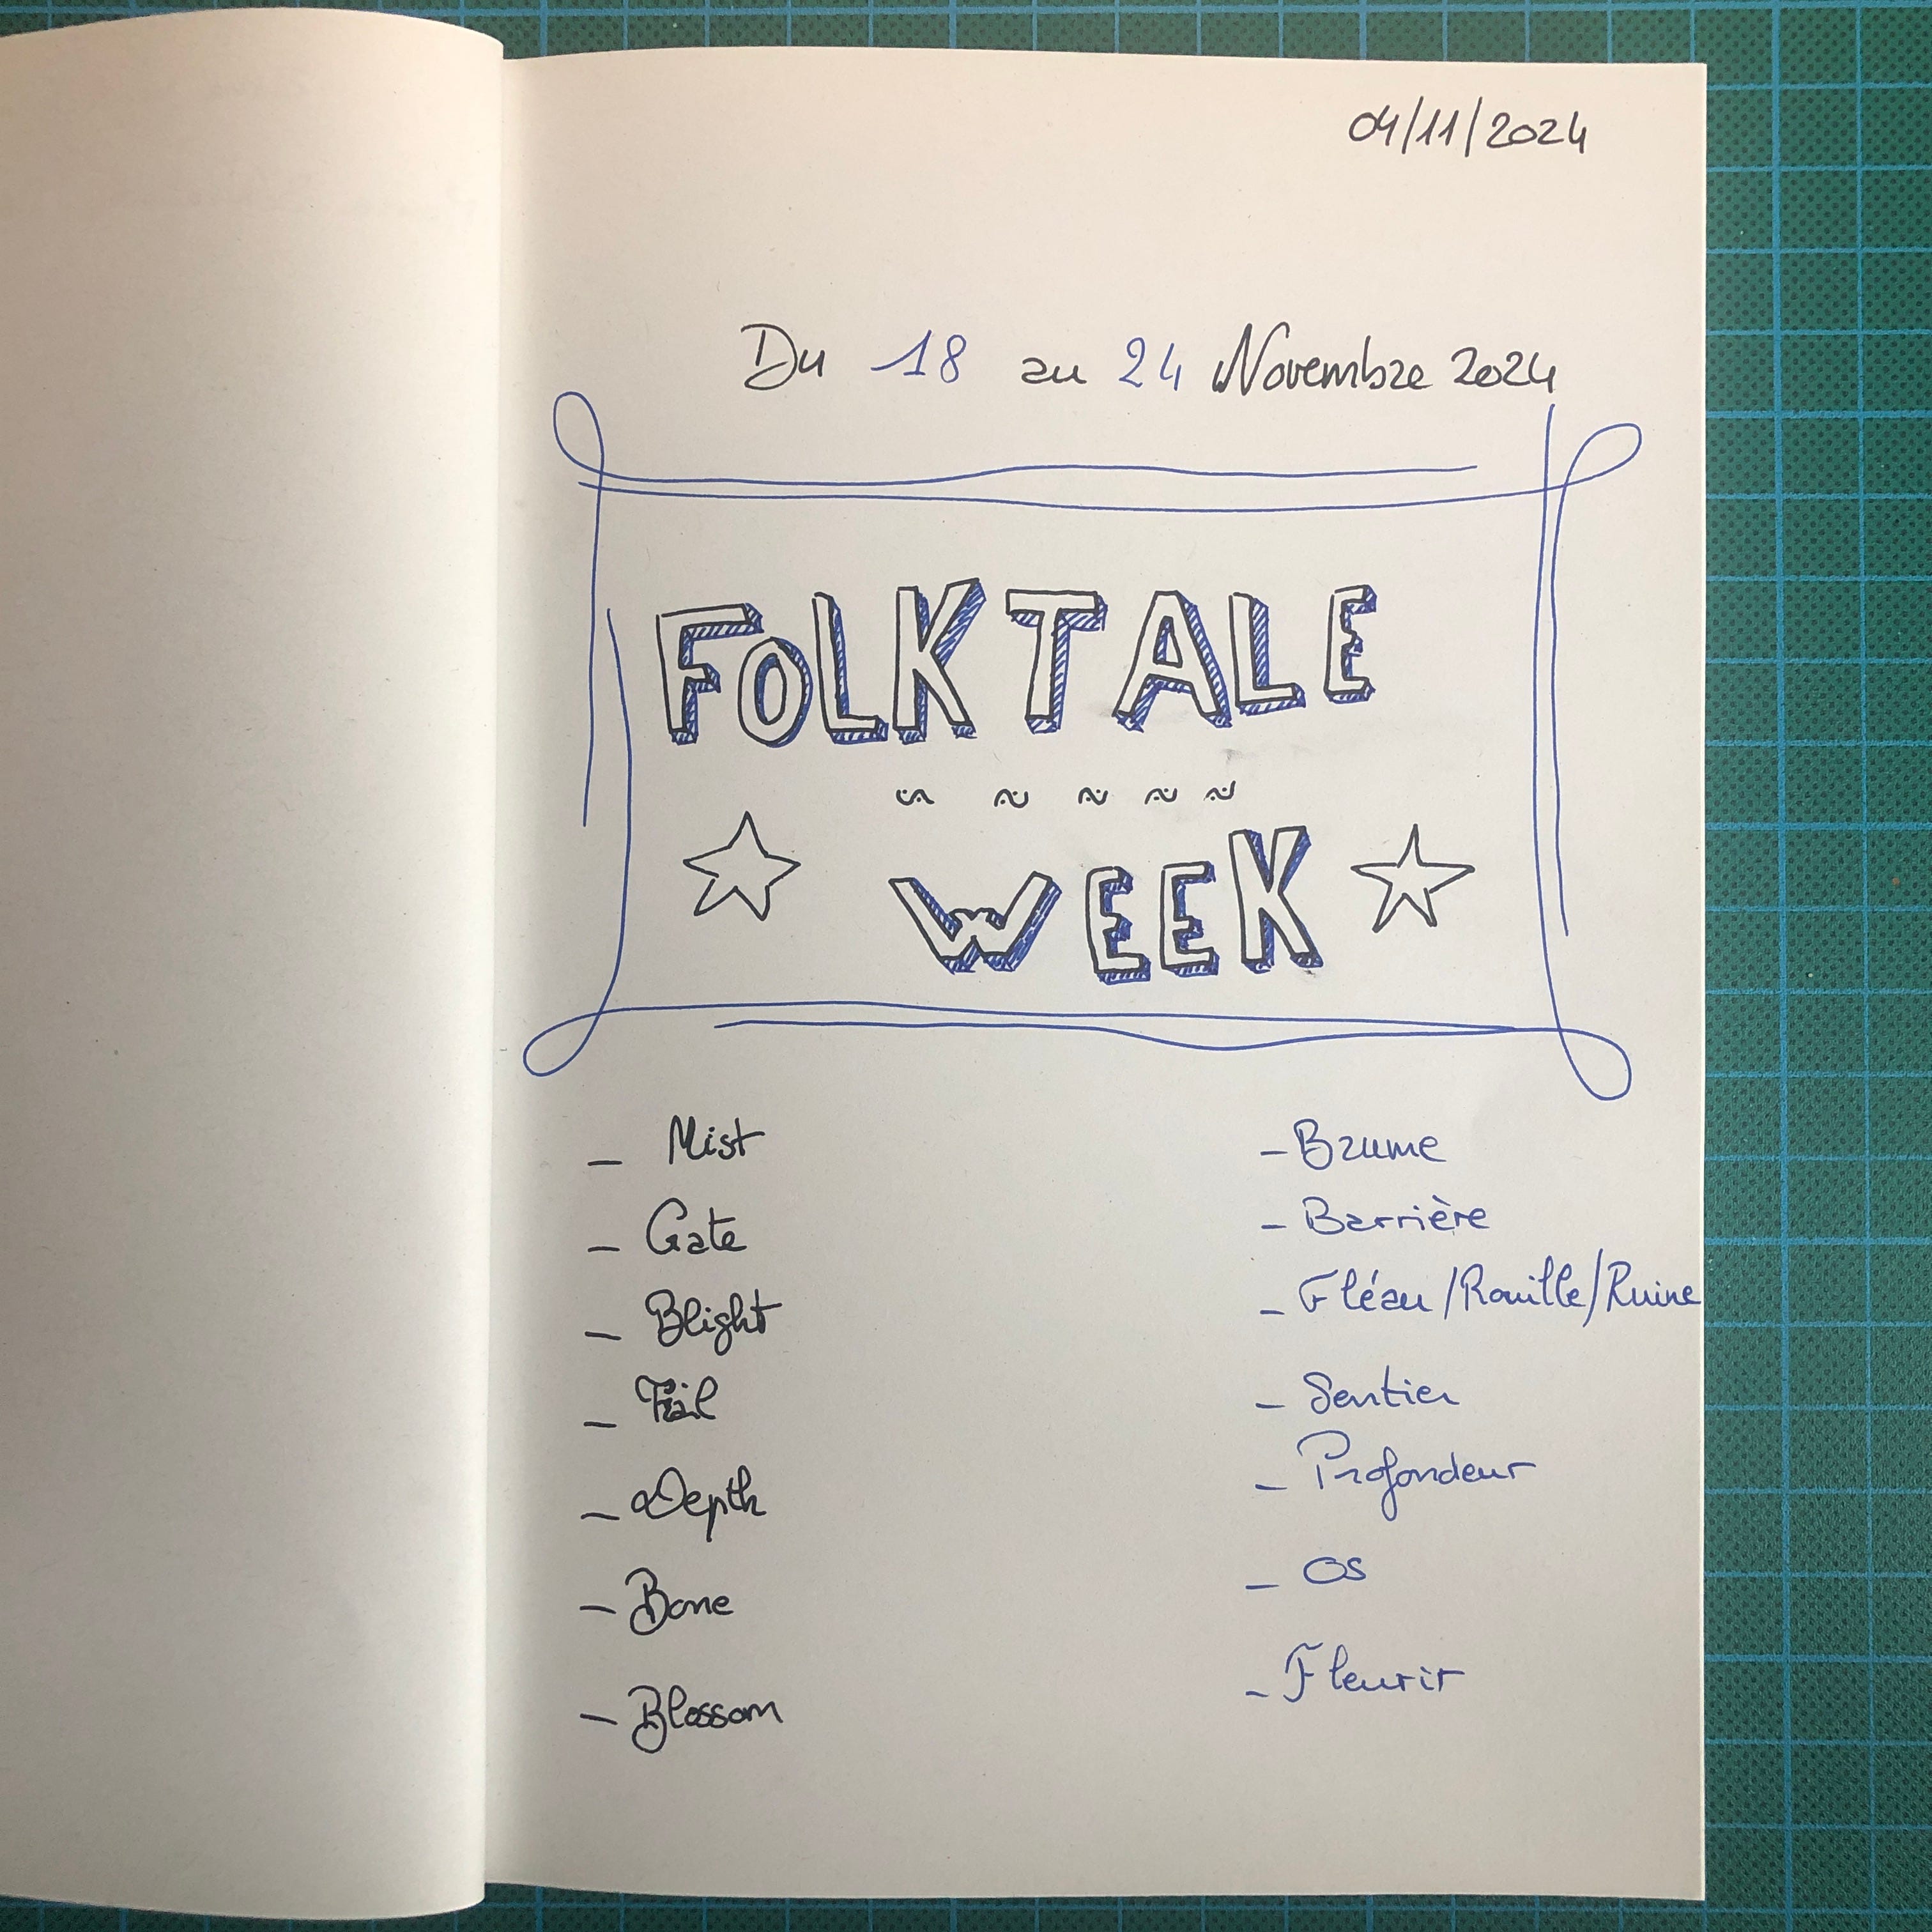 04/11/2024
Du 18 au 24 Novembre 2024
FOLKTALE
~ ~ ~ ~ ~
WEEK
- Mist
- Gate
- Blight
- Trail
- Depth
- Bone
- Blossom
- Brume
- Barrière
- Fléau/Rouille/Ruine
- Sentier
- Profondeur
- Os
- Fleurir